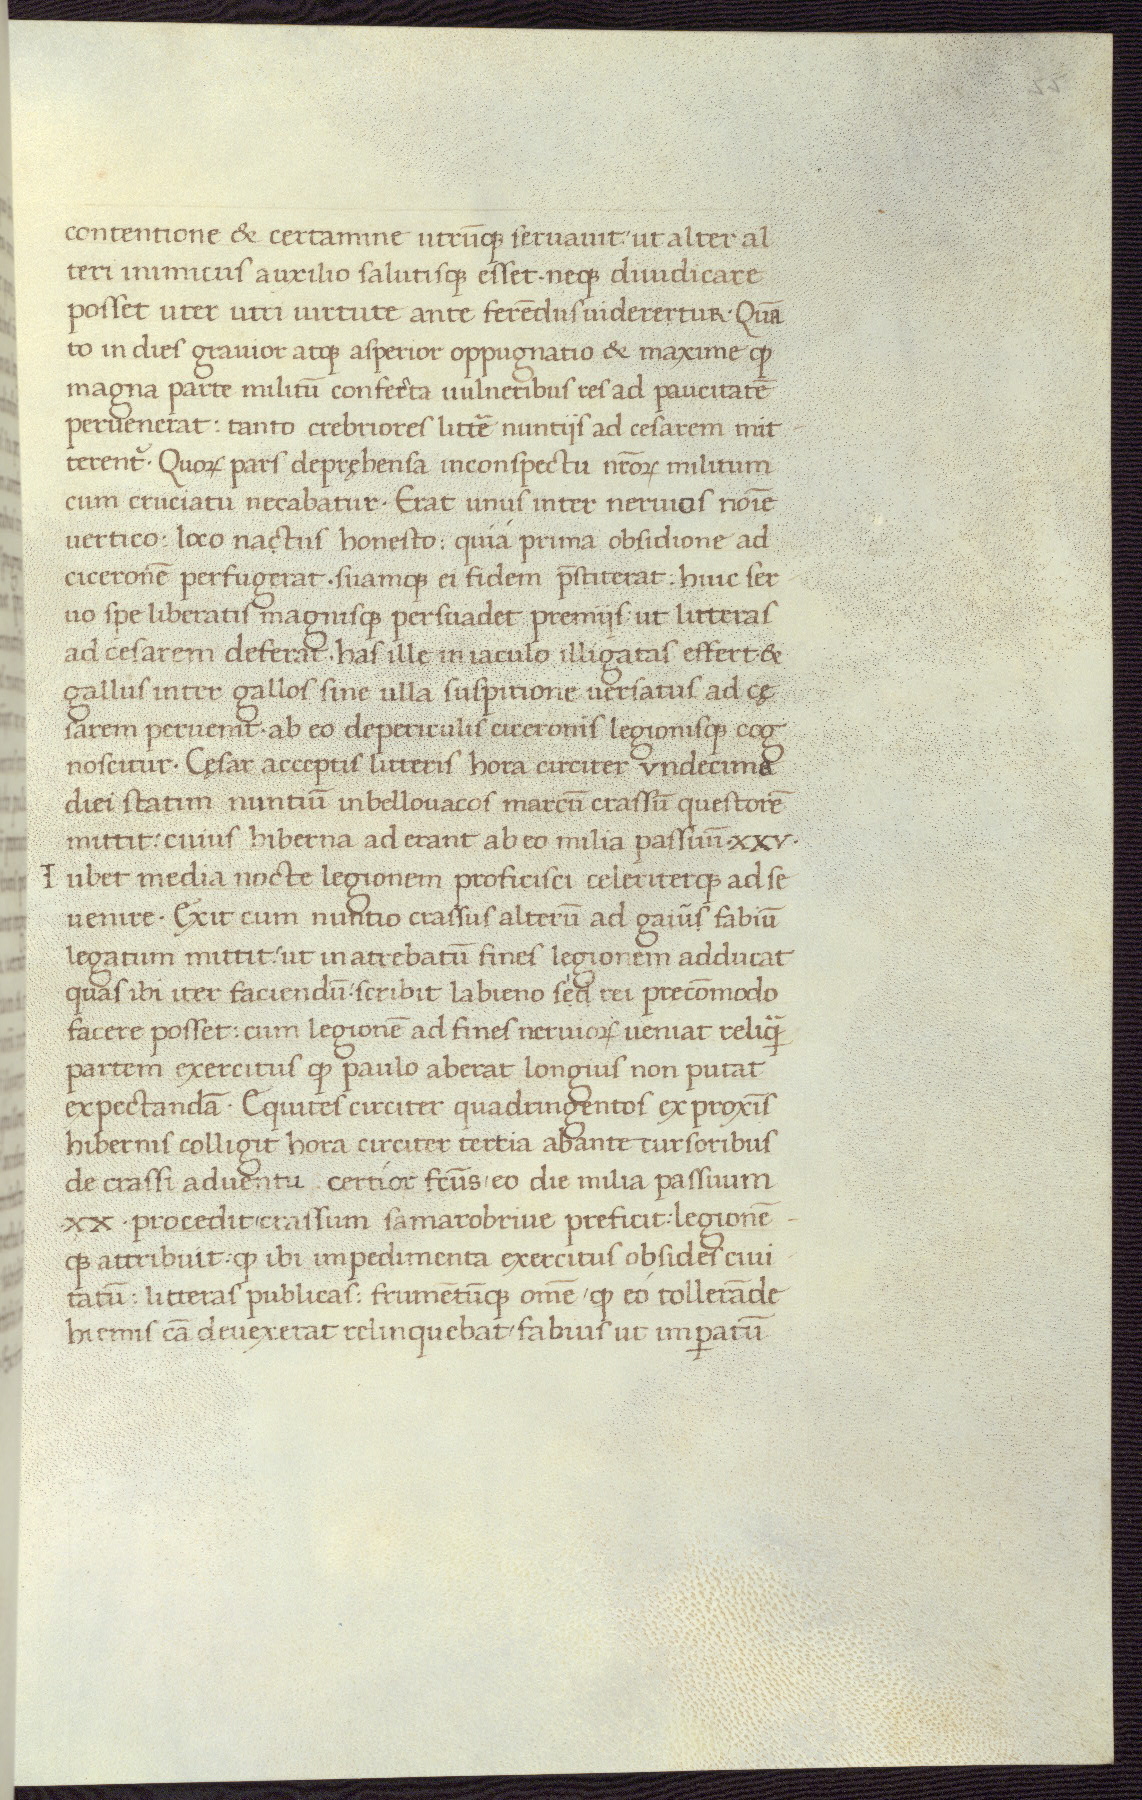 contentione & certamine utrūq; seruauit: ut alter al
teri inimicus auxilio salutisq; esset. neq; diiudicare
posset uter utri uirtute ante ferēdus uiderertur. Quā
to in dies grauior atq; asperior oppugnatio & maxime ꝙ
magna parte militū conferta uulneribus res ad paucitatē
peruenerat: tanto crebriores littē nuntijs ad cesarem mit
terent᷑. Quoꝝ pars depręhensa inconspectu nr̄oꝝ militum
cum cruciatu necabatur. Erat unus inter neruios noīe
uertico: loco nactus honesto: quia prima obsidione ad
ciceronē perfugerat. suamq; ei fidem p̄stiterat: huic ser
uo spe liberatis magnisq; persuadet premijs ut litteras
ad cesarem deferat. has ille in iaculo illigatas effert &
gallus inter gallos sine ulla suspitione uersatus ad cę
sarem peruenit. ab eo depericulis ciceronis legionisq; cog
noscitur. Cęsar acceptis litteris hora circiter vndecima
diei statim nuntiū inbellouacos marcū crassū questorē
mittit: cuius hiberna ad erant ab eo milia passuū .xxv.
Iubet media nocte legionem proficisci celeriterq; ad se
uenire. Exit cum nuntio crassus alterū ad gaiūs fabiū
legatum mittit: ut in atrebatū fines legionem adducat
quas ibi iter faciendū: scribit labieno sed rei precōmodo
facere posset: cum legionē ad fines neruioꝝ ueniat reliq̄
partem exercitus ꝙ paulo aberat longius non putat
expectandā. Equites circiter quadringentos ex proxīs
hibernis colligit hora circiter tertia abante cursoribus
de crassi aduentu certior fc̄us / eo die milia passuum
.xx. procedit / crassum samarobriue preficit: legionē
q; attribuit: ꝙ ibi impedimenta exercitus obsides ciui
tatū: litteras publicas: frumētūq; omē / ꝙ eo tollerāde
hiemis cā deuexerat relinquebat / fabius ut imꝑatū